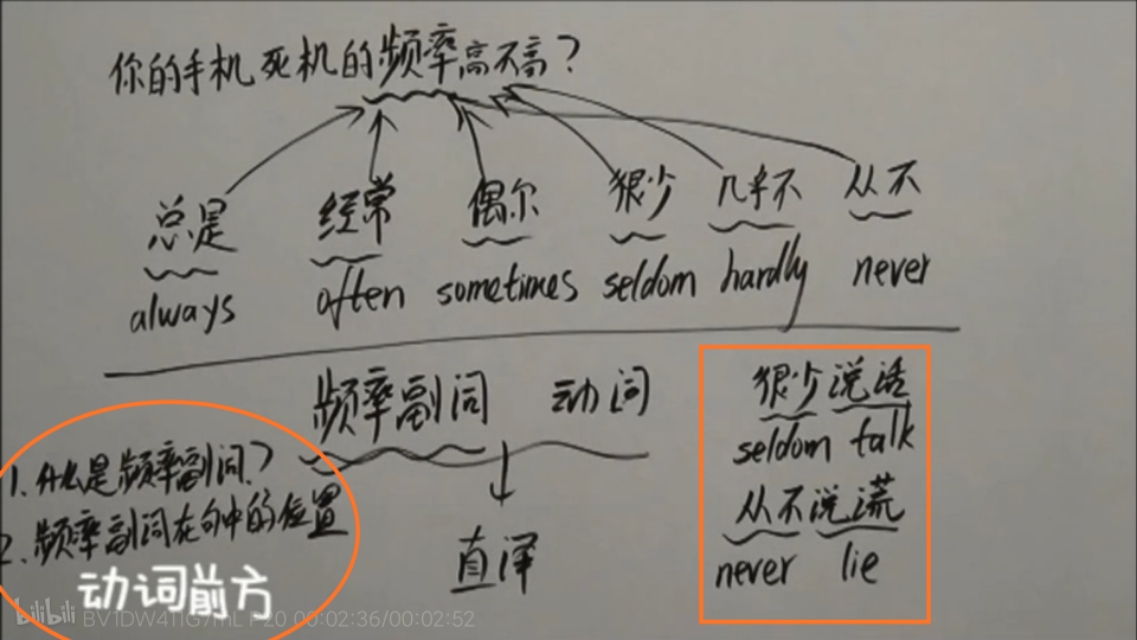 你的手机死机的频率高不高?
总是 经常 偶尔 很少 几乎不 从不
always often sometimes seldom hardly never
频率副词 动词
直译
1.什么是频率副词?
2.频率副词在句中的位置
动词前方
很少说话
seldom talk
从不说谎
never lie
bilibili
00:02:36/00:02:52